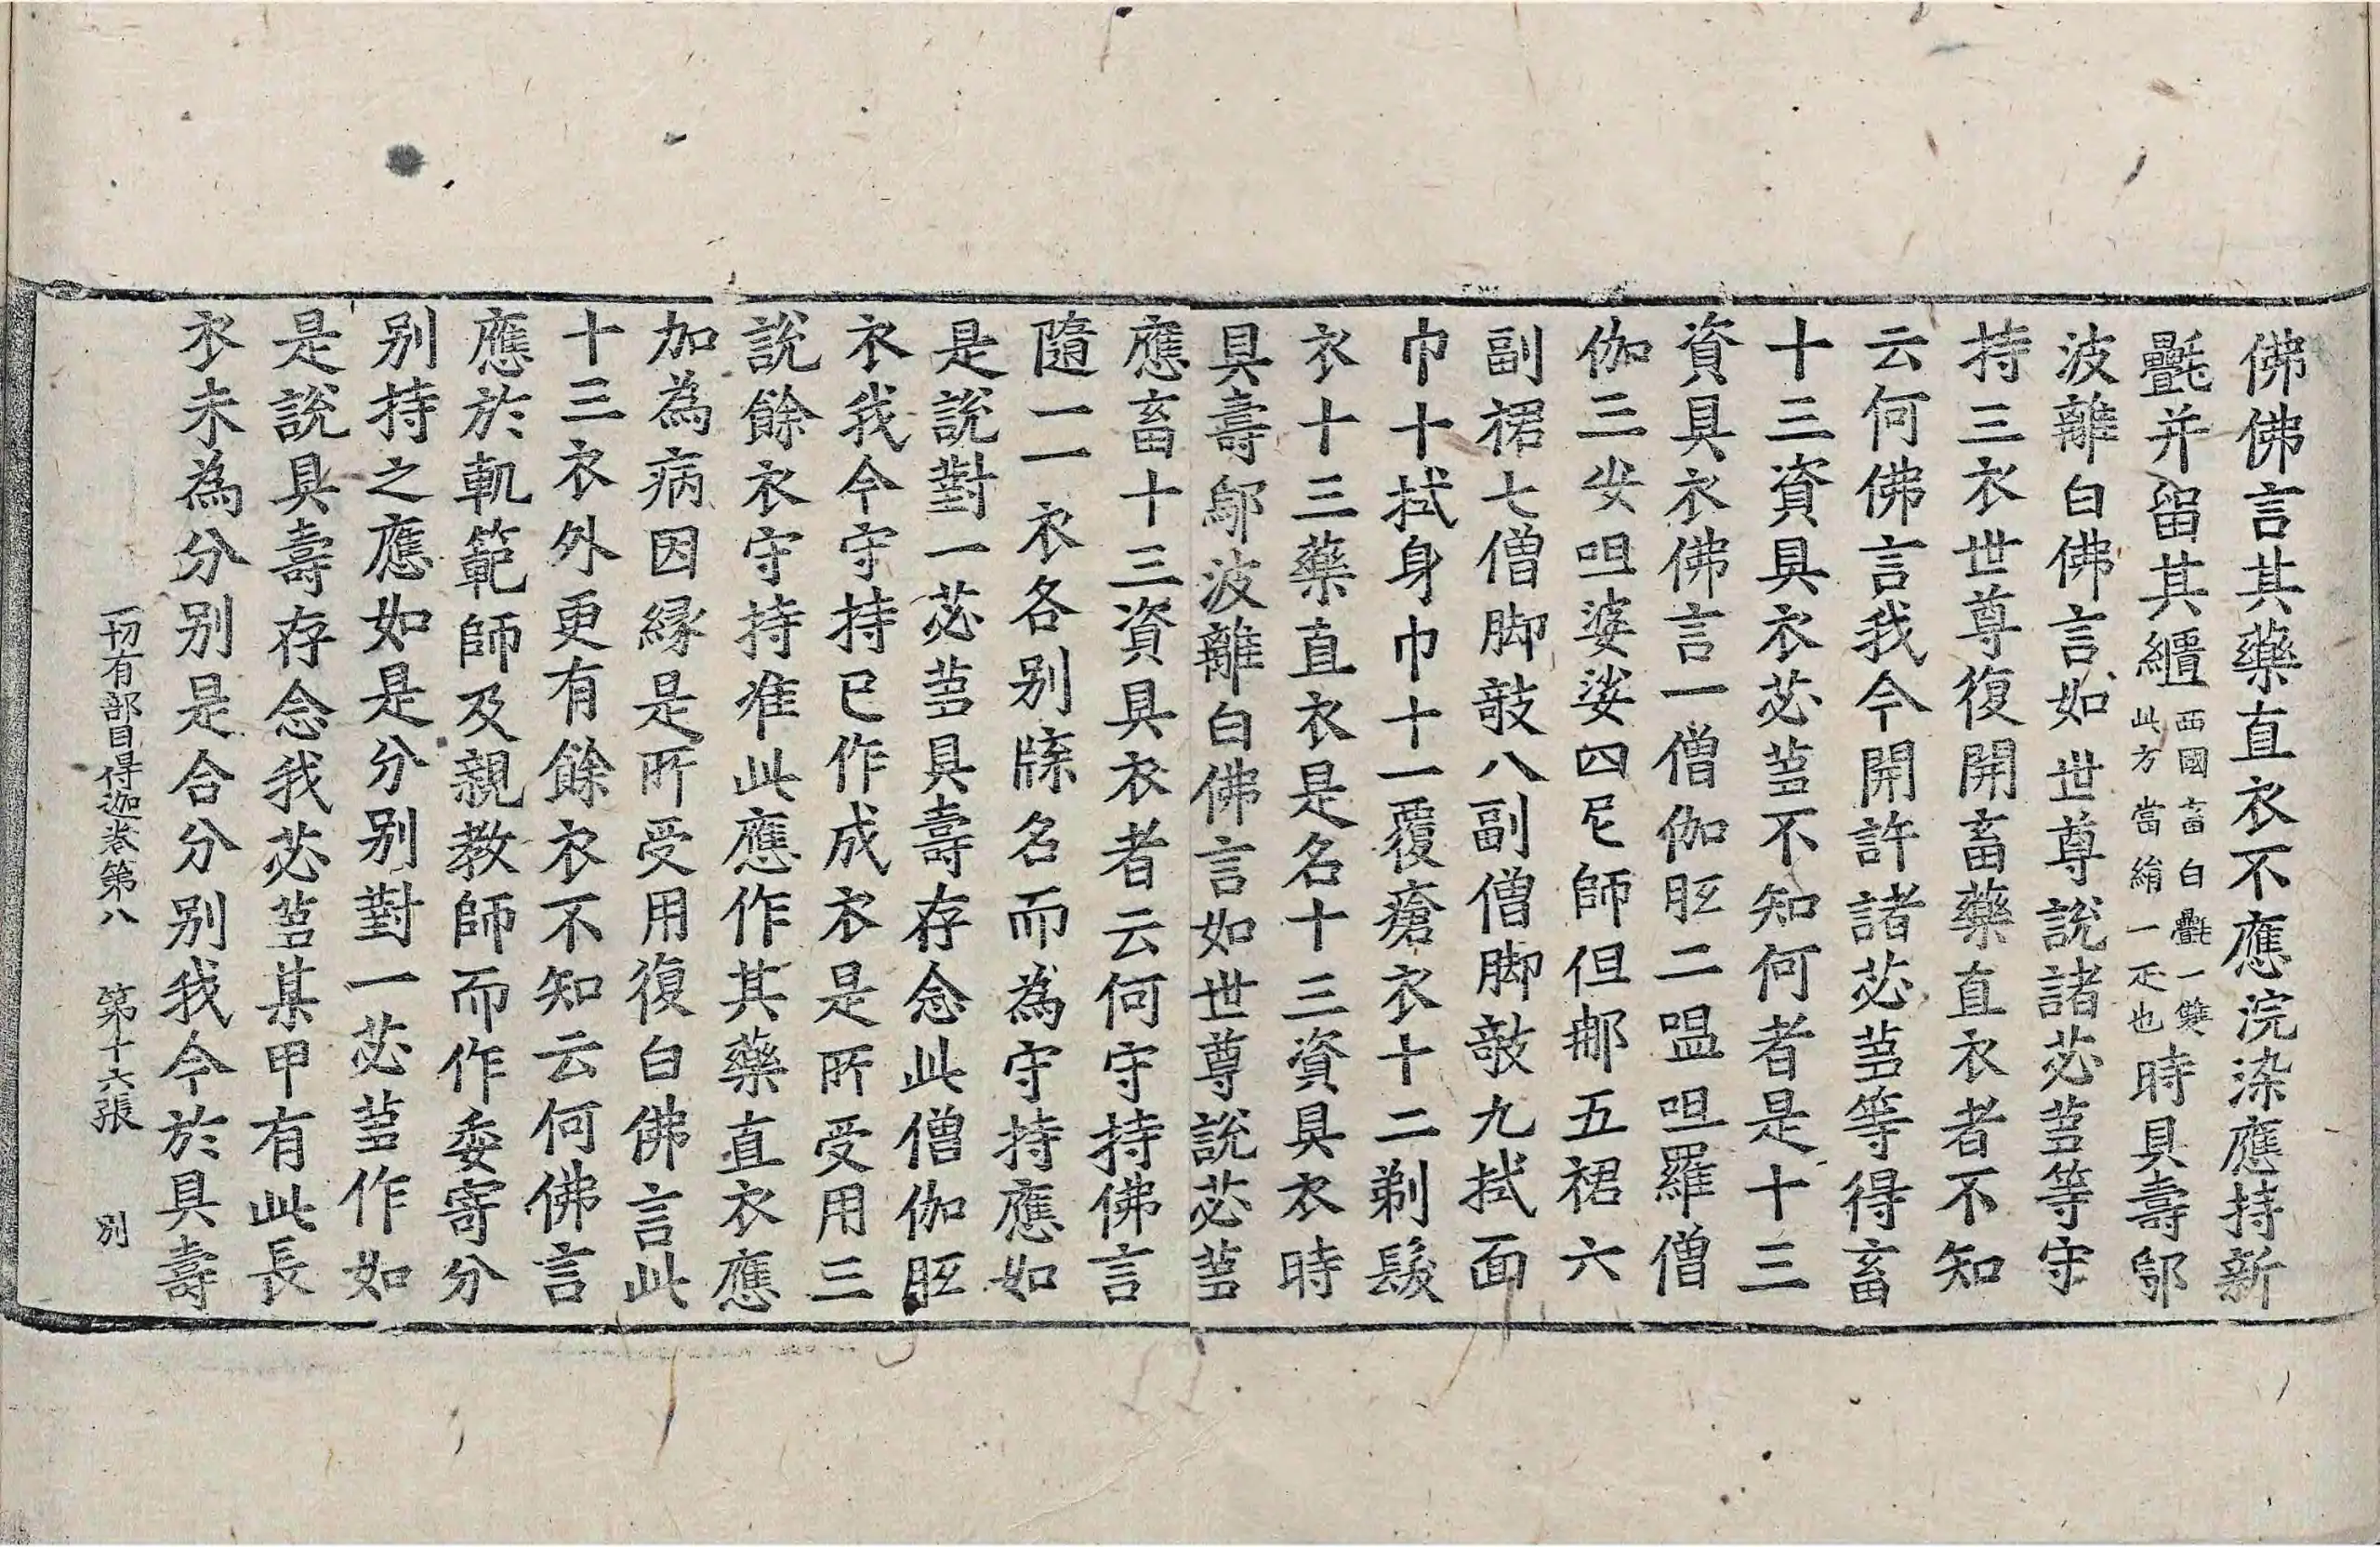 佛佛言其藥直衣不應浣染應持新
氎并留其繮西國畜白氎一雙此方當絹一疋也時具壽鄔
波離白佛言如世尊說諸苾芻等守
持三衣世尊復開畜藥直衣者不知
云何佛言我今開許諸苾芻等得畜
十三資具衣苾芻不知何者是十三
資具衣佛言一僧伽胝二嗢呾羅僧
伽三安呾婆娑四尼師但那五裙六
副裙七僧脚敧八副僧脚敧九拭面
巾十拭身巾十一覆瘡衣十二剃髮
衣十三藥直衣是名十三資具衣時
具壽鄔波離白佛言如世尊說苾芻
應畜十三資具衣者云何守持佛言
隨一一衣各别牒名而為守持應如
是說對一苾芻具壽存念此僧伽胝
衣我今守持已作成衣是所受用三
說餘衣守持准此應作其藥直衣應
加為病因緣是所受用復白佛言此
十三衣外更有餘衣不知云何佛言
應於軌範師及親教師而作委寄分
别持之應如是分别對一苾芻作如
是說具壽存念我苾芻某甲有此長
衣未為分别是合分别我今於具壽
一切有部目得迦卷第八　第十六張　別